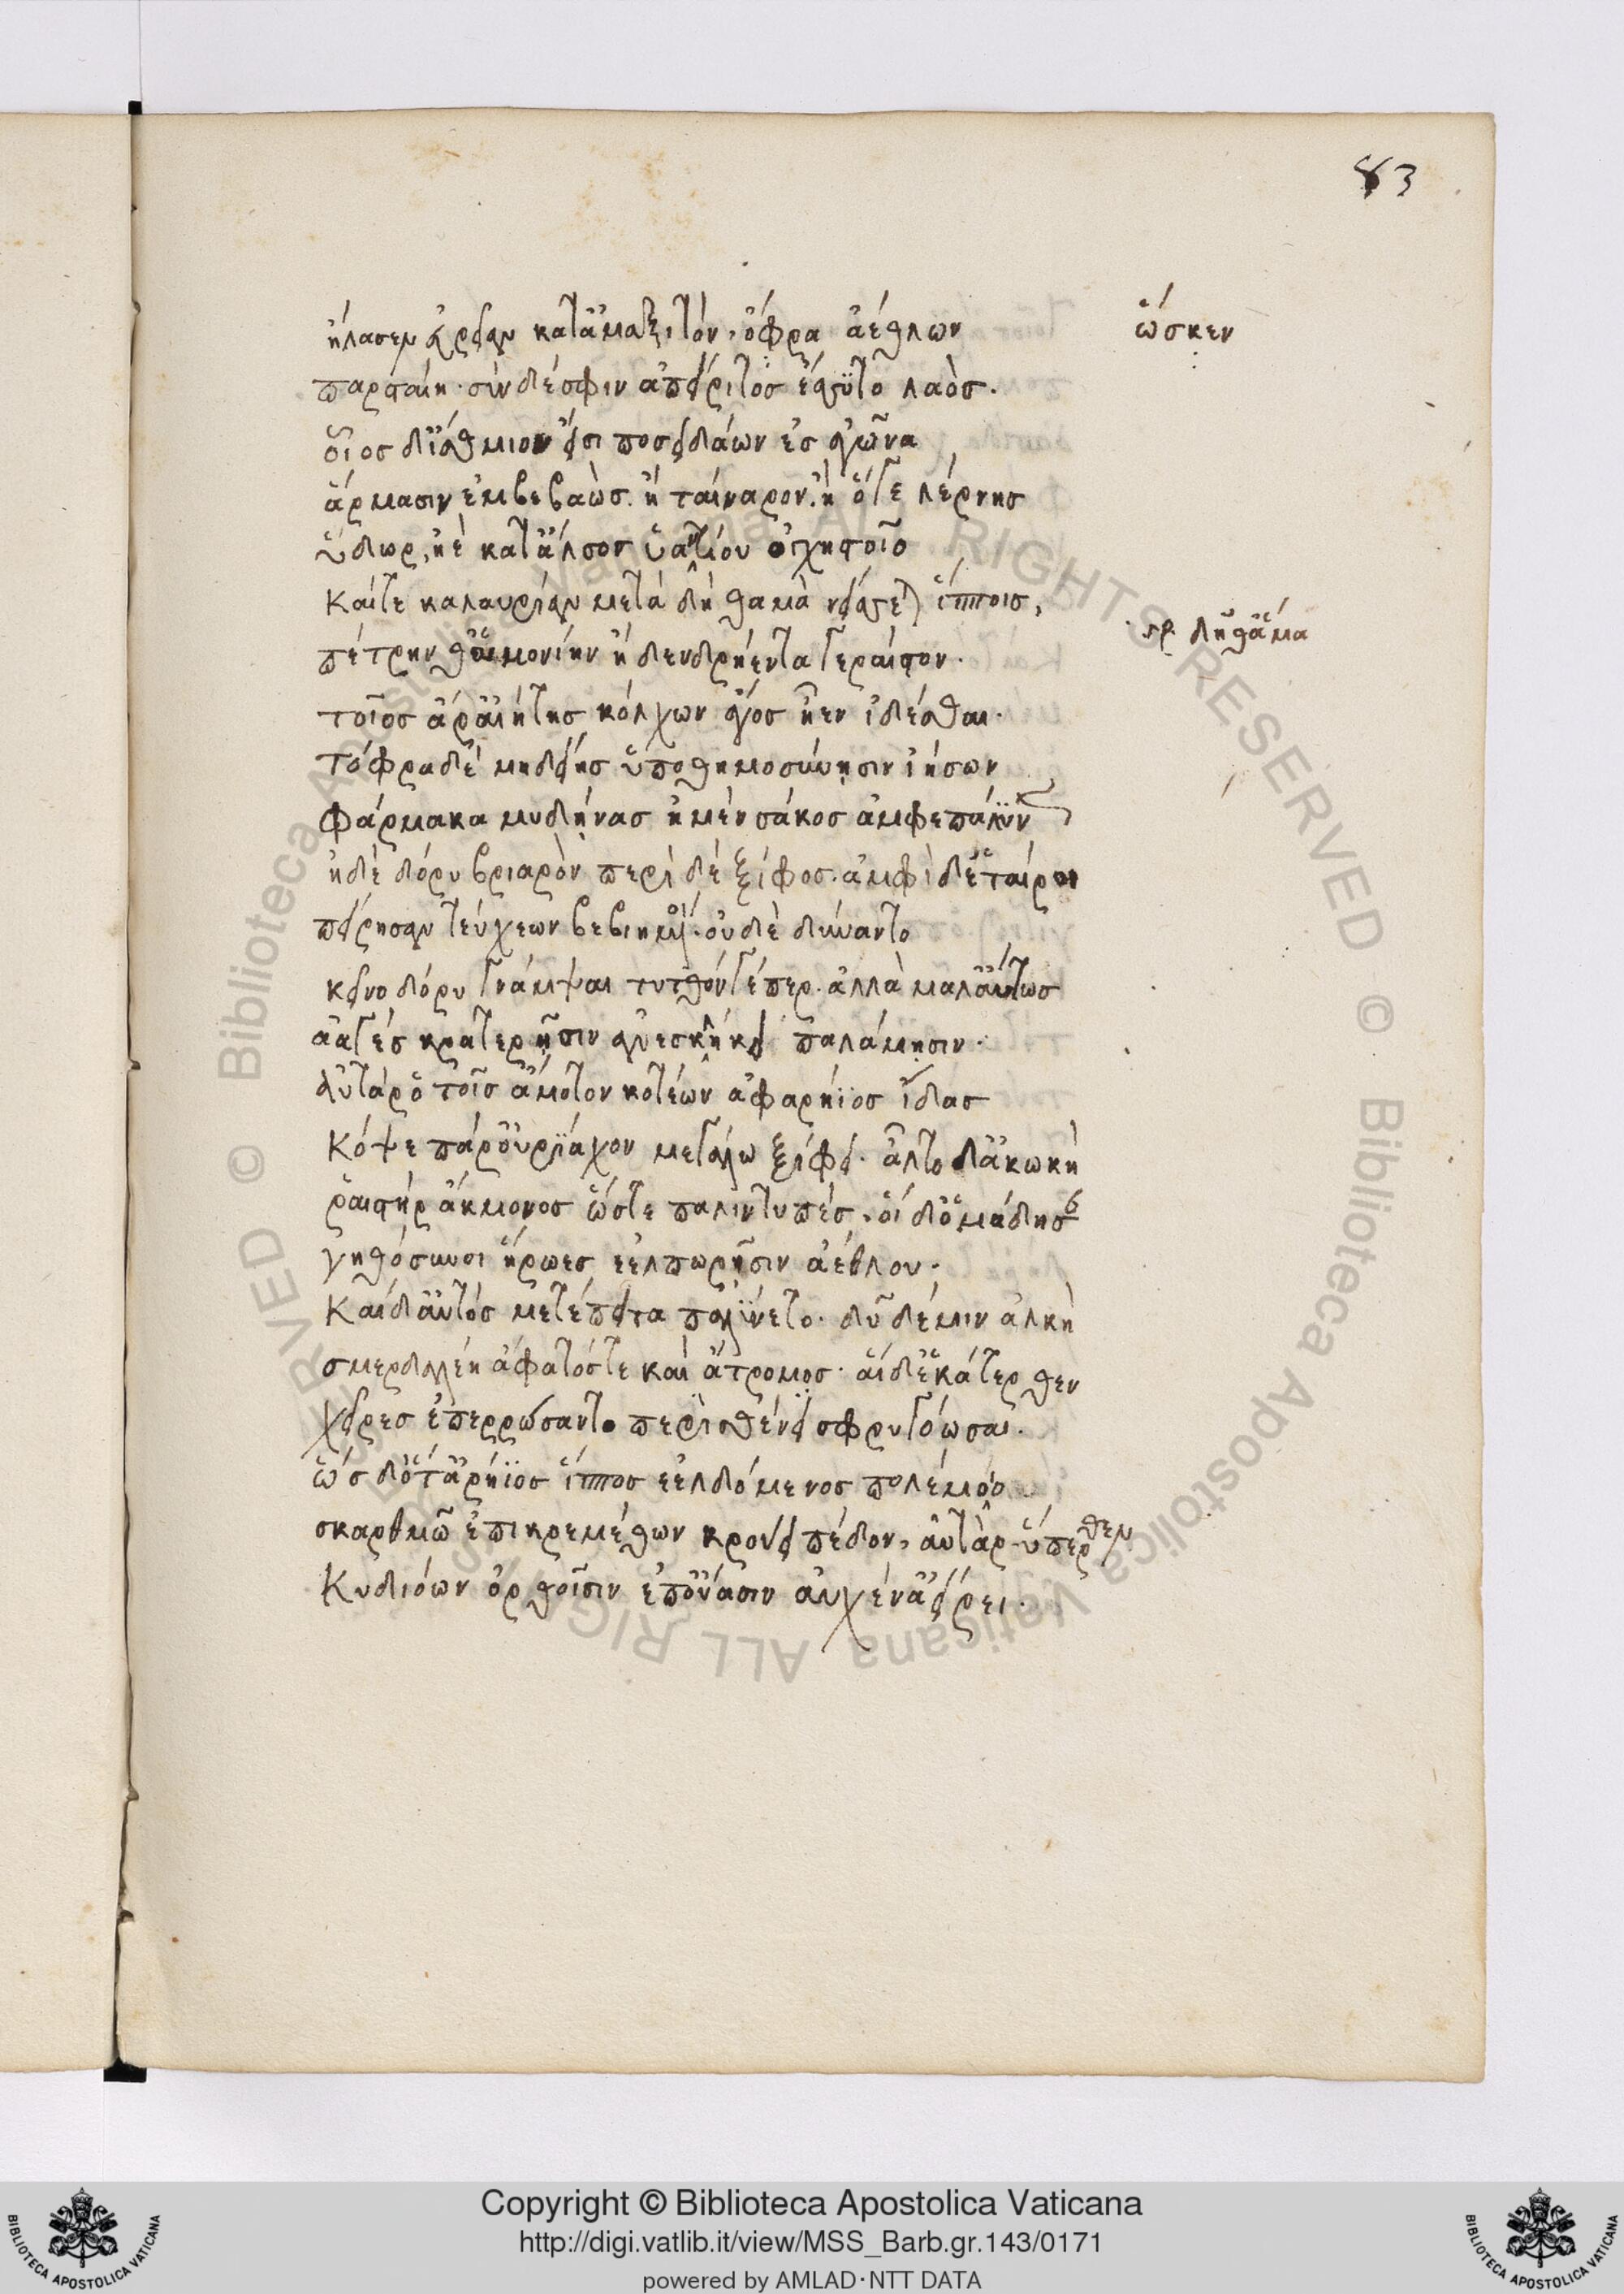 83
ἤλασεν εὐρεῖαν κατ' ἀμαξιτὸν, ὄφρα ἀέθλων
ὥσκεν
παρσταίη· σὺν δέ σφιν ἀπείριτος ἔσσυτο λαός.
οἷος δ' ἴσθμιον εἶσι ποσειδάων ἐς ἀγῶνα
ἅρμασιν ἐμβεβαώς. ἢ ταίναρον. ἢ ὅγε λέρνης
ὕδωρ, ἠὲ κατ' ἄλσος ὑαντίου ὀγχηστοῖο
Καί τε καλαυρίαν μετὰ δὴ θαμὰ νείσσεται ἵπποις,
πέτρην θ' αἱμονίην ἢ δενδρήεντα γεραιστον.
γρ δῆθ' ἅμα
τοῖος ἄρ' αἰήτης κόλχων ἀγὸς ἦεν ἰδέσθαι.
τόφρα δὲ μηδείης ὑποθημοσύνῃσιν ἰήσων
Φάρμακα μυδήνας ἠμὲν σάκος ἀμφεπάλυνεν
ἠδὲ δόρυ βριαρὸν περὶ δὲ ξίφος. ἀμφὶ δ' ἑταῖροι
πείρησαν τευχέων βεβιημένοι. οὐδὲ δύναντο
κεῖνο δόρυ γνάμψαι τυτθόν γέ περ. ἀλλὰ μάλ' αὔτως
ἀαγὲς κρατερῇσιν ἀνεσκλήκει παλάμῃσιν.
αὐτὰρ ὁ τοῖς ἄμοτον κοτέων ἀφαρήϊος ἴδας
Κόψε παρ' οὐρίαχον μεγάλω ξίφει. ἆλτο δ' ἀκωκὴ
ῥαιστὴρ ἄκμονος ὥστε παλιντυπές. οἱ δ' ὁμάδησαν
γηθόσυνοι ἥρωες ἐελπωρῇσιν ἀέθλου.
Καὶ δ' αὐτὸς μετέπειτα παλύνετο. δῦ δέ μιν ἀλκὴ
σμερδαλέη ἄφατός τε καὶ ἄτρομος. αἱ δ' ἑκάτερθεν
χεῖρες ἐπερρώσαντο περὶ σθένει σφριγόωσαι.
ὡς δ' ὅτ' ἀρήϊος ἵππος ἐελδόμενος πολέμοιο
σκαρθμῶ ἐπιχρεμέθων κρούει πέδον, αὐτὰρ ὕπερθεν
Κυδιόων ὀρθοῖσιν ἐπ' οὔασιν αὐχέν' ἀείρει.
Copyright © Biblioteca Apostolica Vaticana
http://digi.vatlib.it/view/MSS_Barb.gr.143/0171
powered by AMLAD·NTT DATA